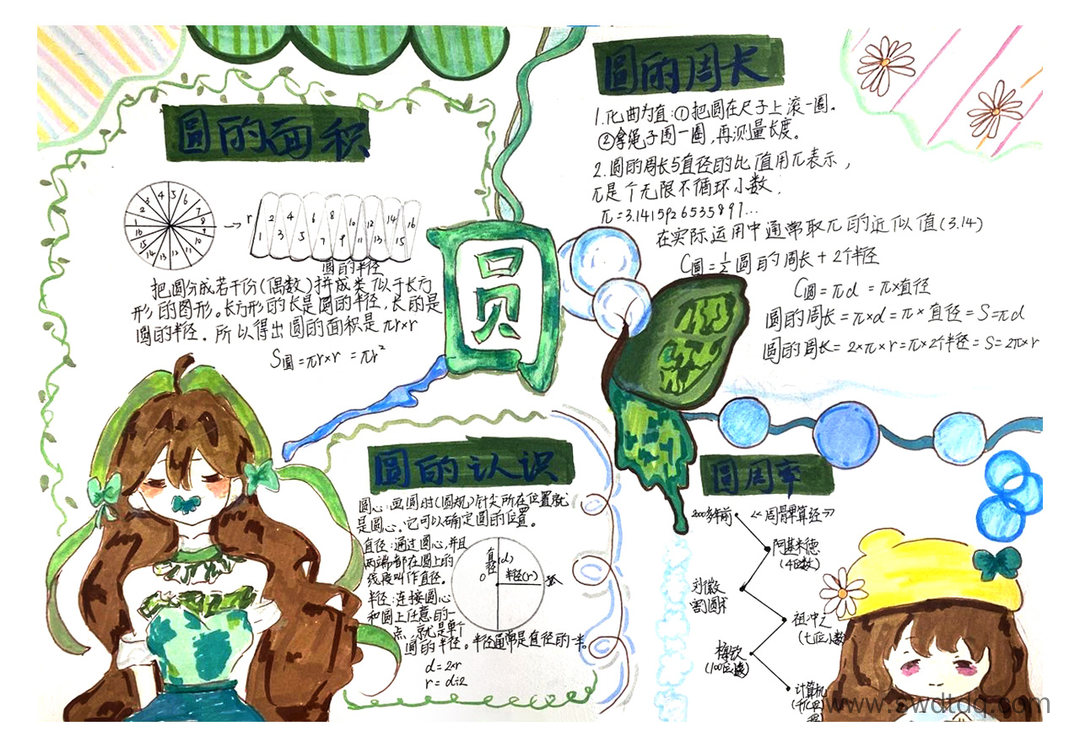 圆的面积
1 2 3 4 5 6 7 8 9 10 11 12 13 14 15 16
r
2 4 6 8 10 12 14 16
1 3 5 7 9 11 13 15
圆的半径
把圆分成若干份(偶数)拼成类似于长方
形的图形。长方形的长是圆的半径,长的是
圆的半径.所以得出圆的面积是πr×r
S圆=πr×r=πr²
圆
圆的周长
1.π曲为值:①把圆在尺子上滚一圈。
②拿绳子围一圈,再测量长度。
2.圆的周长与直径的比值用π表示,
π是个无限不循环小数.
π=3.141592653589 1...
在实际运用中通常取π的近似值(3.14)
C圆=½圆的周长+2个半径
C圆=πd=π×直径
圆的周长=π×d=π×直径=S=πd
圆的周长=2×π×r=π×2个半径=S=2π×r
圆的认识
圆心:画圆时(圆规)针尖所在位置就
是圆心.它可以确定圆的位置。
直径:通过圆心,并且
两端都在圆上的
线段叫作直径。
半径:连接圆心
和圆上任意的一
点,就是
圆的半径。半径通常是直径的一半。
d=2×r
r=d÷2
直径(d)
O
半径(r)
圆周率
2000多年前
《周髀算经》
阿基米德
刘徽
割圆术
祖冲之
(七位小数)
梅钦
(100位数)
计算机
www.swdtdq.com